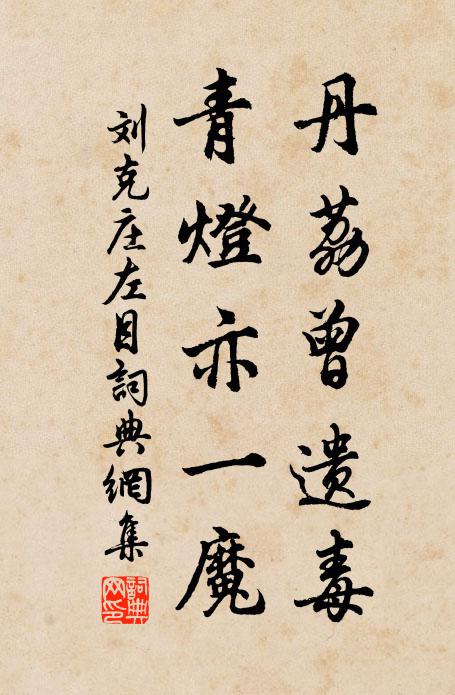 丹荔曾遺毒
青燈亦一魔
刘克庄左目詞典網集
詞典
网印